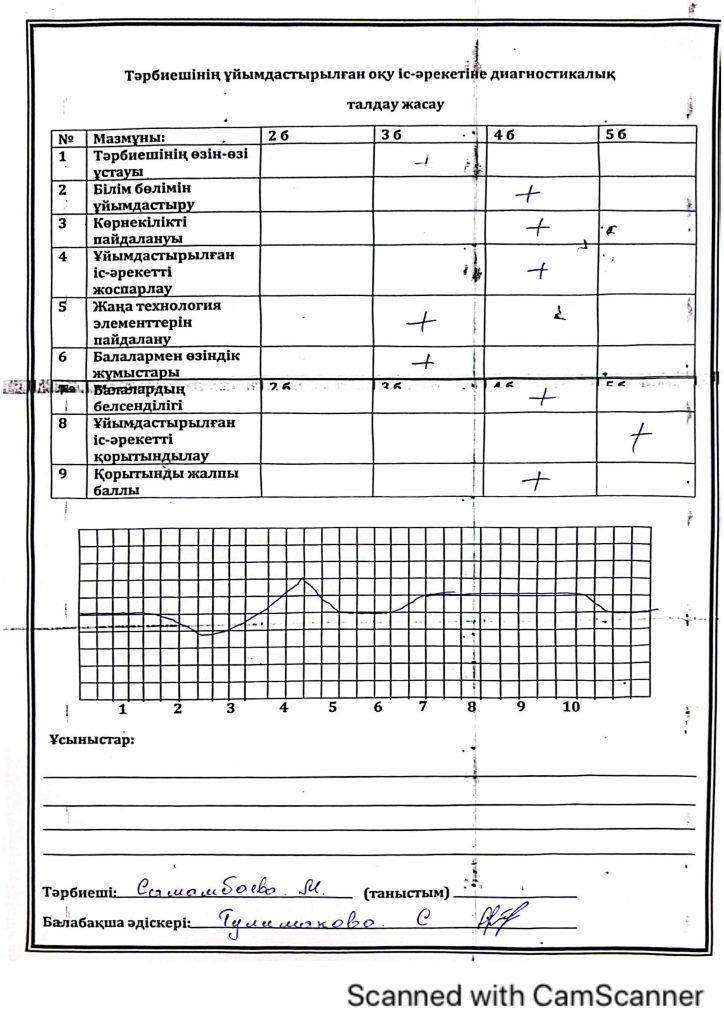 Тәрбиешінің ұйымдастырылған оқу іс-әрекетіне диагностикалық
талдау жасау
№ Мазмұны: 2 б 3 б 4 б 5 б
1 Тәрбиешінің өзін-өзі
ұстауы +
2 Білім бөлімін
ұйымдастыру +
3 Көрнекілікті
пайдалануы +
4 Ұйымдастырылған
іс-әрекетті
жоспарлау +
5 Жаңа технология
элементтерін
пайдалану +
6 Балалармен өзіндік
жұмыстары +
№ 2 б 3 б 4 б 5 б
7 Балалардың
белсенділігі +
8 Ұйымдастырылған
іс-әрекетті
қорытындылау +
9 Қорытынды жалпы
баллы +
1 2 3 4 5 6 7 8 9 10
Ұсыныстар:
Тәрбиеші: М. (таныстым)
Балабақша әдіскері: С
Scanned with CamScanner